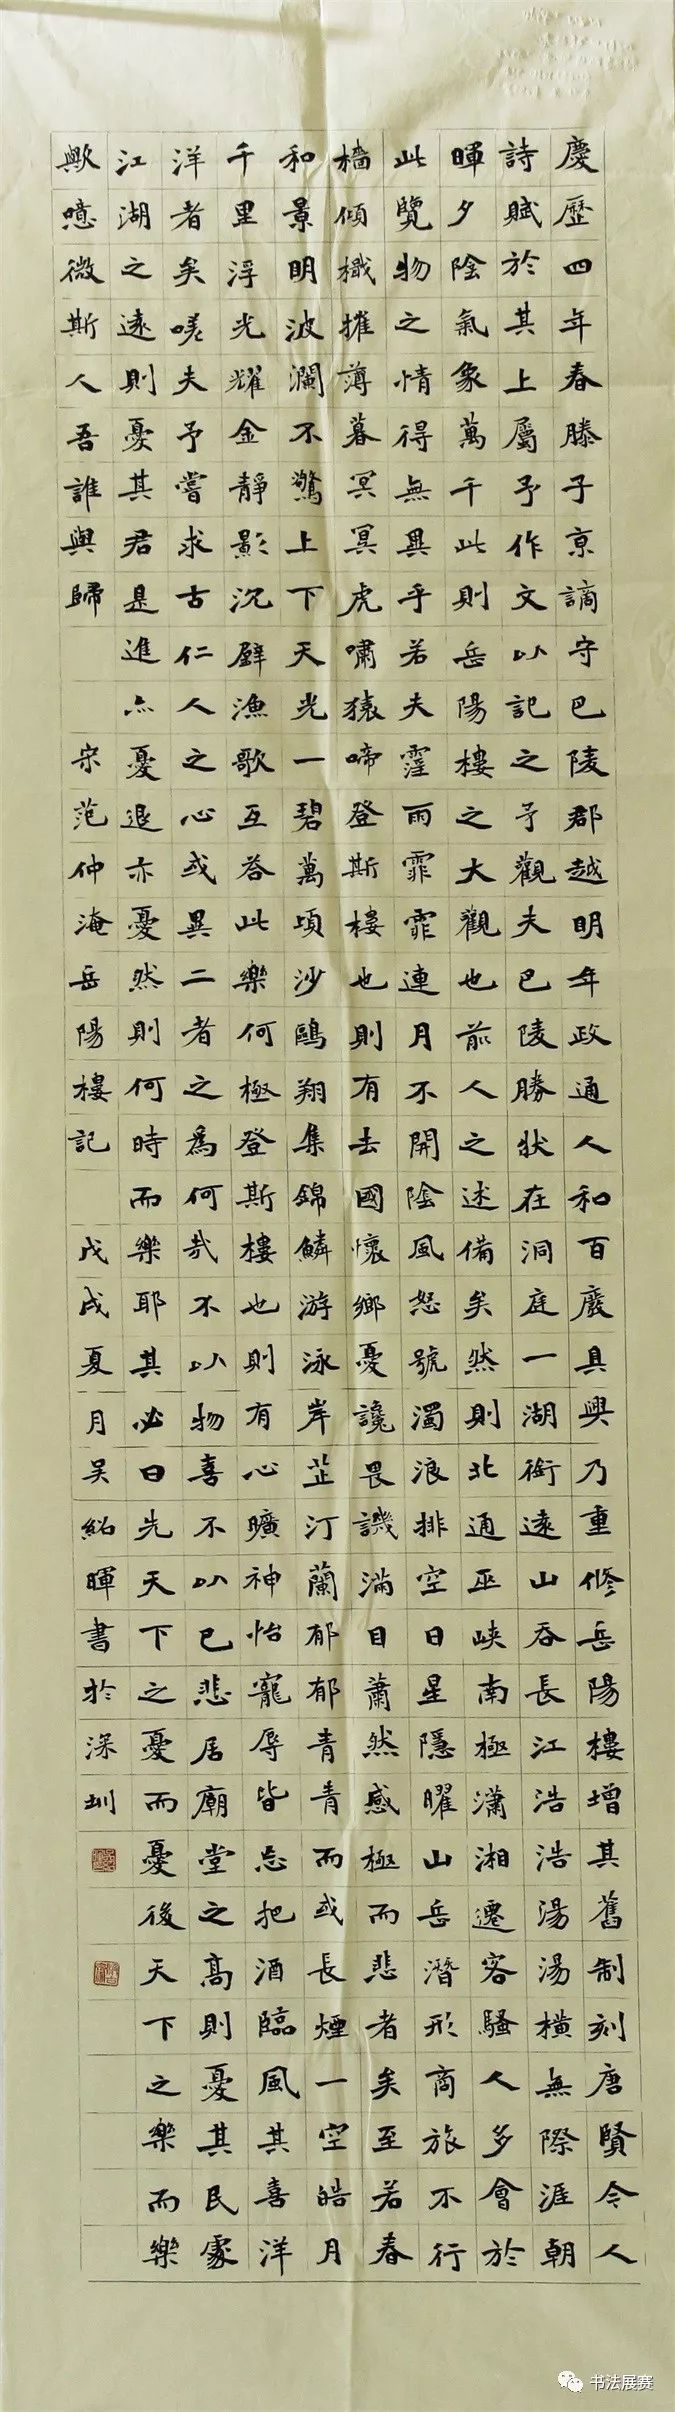 慶歷四年春滕子京謫守巴陵郡越明年政通人和百廢具興乃重修岳陽樓增其舊制刻唐賢今人
詩賦於其上屬予作文以記之予觀夫巴陵勝狀在洞庭一湖銜遠山吞長江浩浩湯湯橫無際涯朝
暉夕陰氣象萬千此則岳陽樓之大觀也前人之述備矣然則北通巫峽南極瀟湘遷客騷人多會於
此覽物之情得無異乎若夫霪雨霏霏連月不開陰風怒號濁浪排空日星隱曜山岳潛形商旅不行
檣傾檝摧薄暮冥冥虎嘯猿啼登斯樓也則有去國懷鄉憂讒畏譏滿目蕭然感極而悲者矣至若春
和景明波瀾不驚上下天光一碧萬頃沙鷗翔集錦鱗游泳岸芷汀蘭郁郁青青而或長煙一空皓月
千里浮光耀金靜影沉璧漁歌互答此樂何極登斯樓也則有心曠神怡寵辱皆忘把酒臨風其喜洋
洋者矣嗟夫予嘗求古仁人之心或異二者之為何哉不以物喜不以己悲居廟堂之高則憂其民處
江湖之遠則憂其君是進亦憂退亦憂然則何時而樂耶其必曰先天下之憂而憂後天下之樂而樂
歟噫微斯人吾誰與歸 宋范仲淹岳陽樓記 戊戌夏月吳紹暉書於深圳
书法展赛